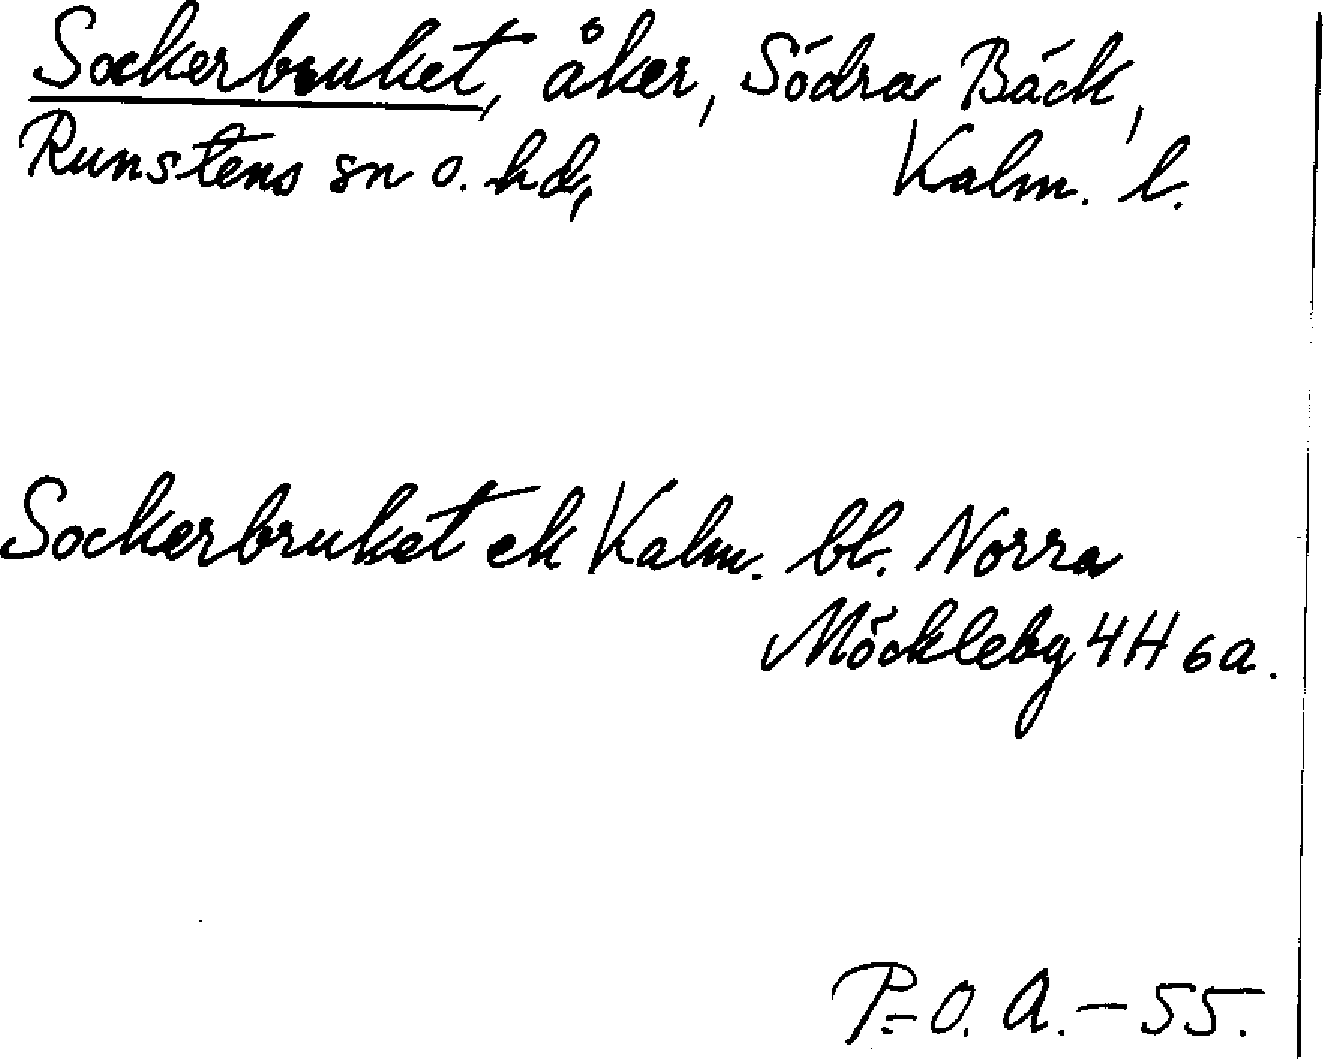 Sockerbruket, åker, Södra Bäck,
Runstens sn o. hd, Kalm. l.
Sockerbruket ek Kalm. bl. Norra
Möckleby 4H 6a.
P-O. A. - 55.